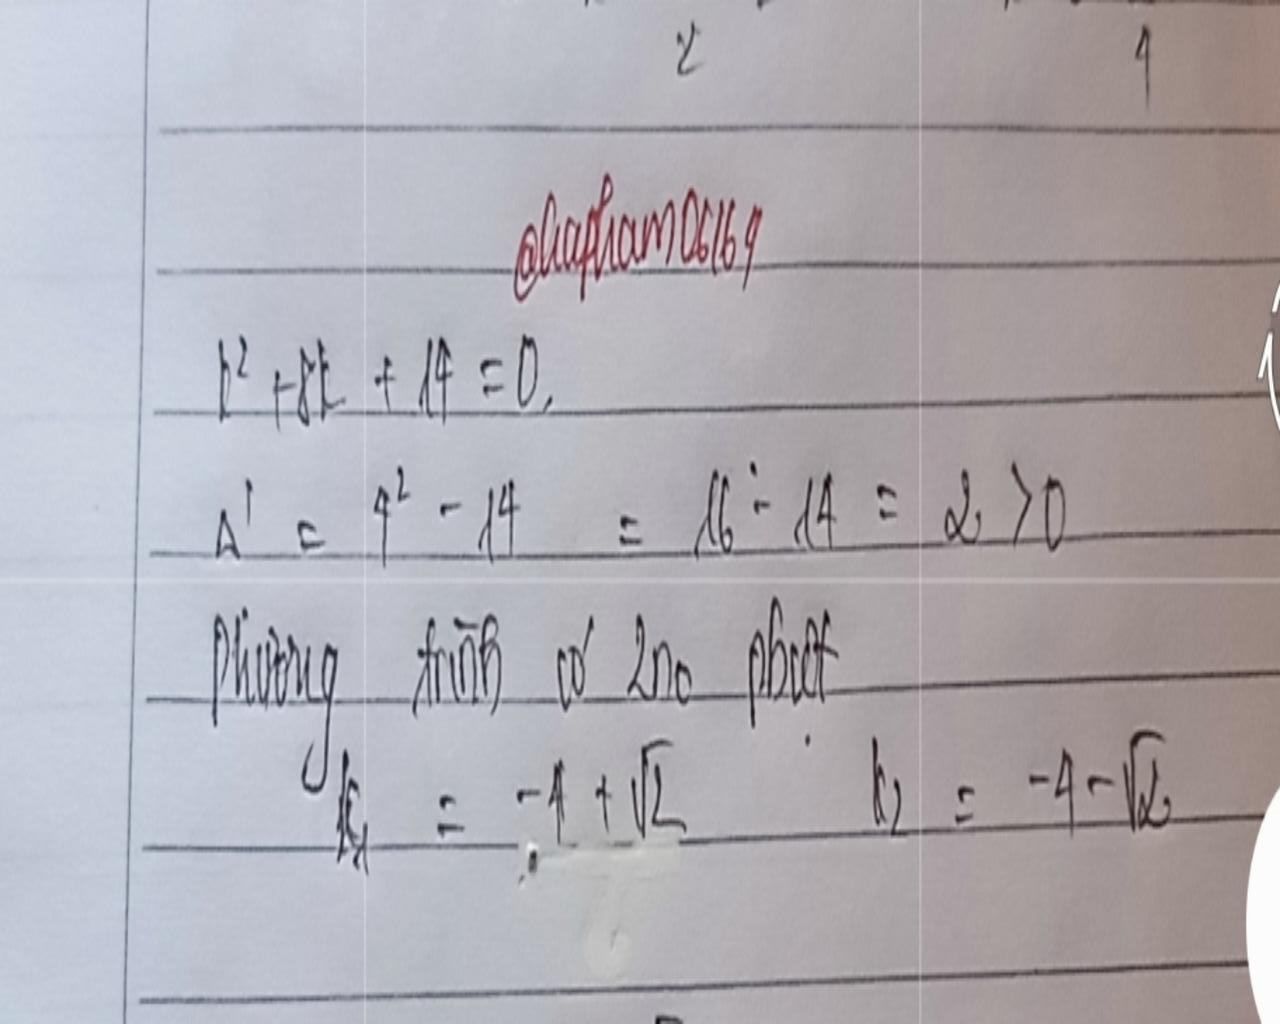 2 4
@hapham06169
k² + 8k + 14 = 0.
Δ' = 4² - 14 = 16 - 14 = 2 > 0
Phương trình có 2 no pbiệt
k₁ = -4 + √2 k₂ = -4 - √2